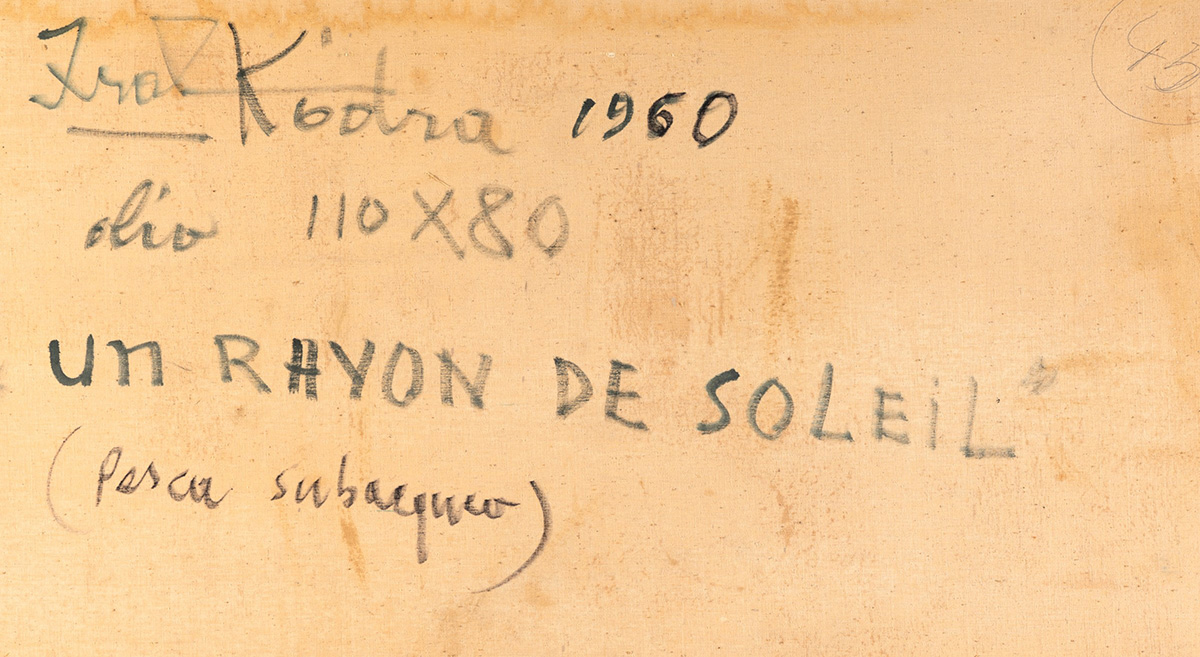 Ibra Kodra 1960
45
olio 110X80
un RAYON DE SOLEiL"
(Pesca subacqueo)